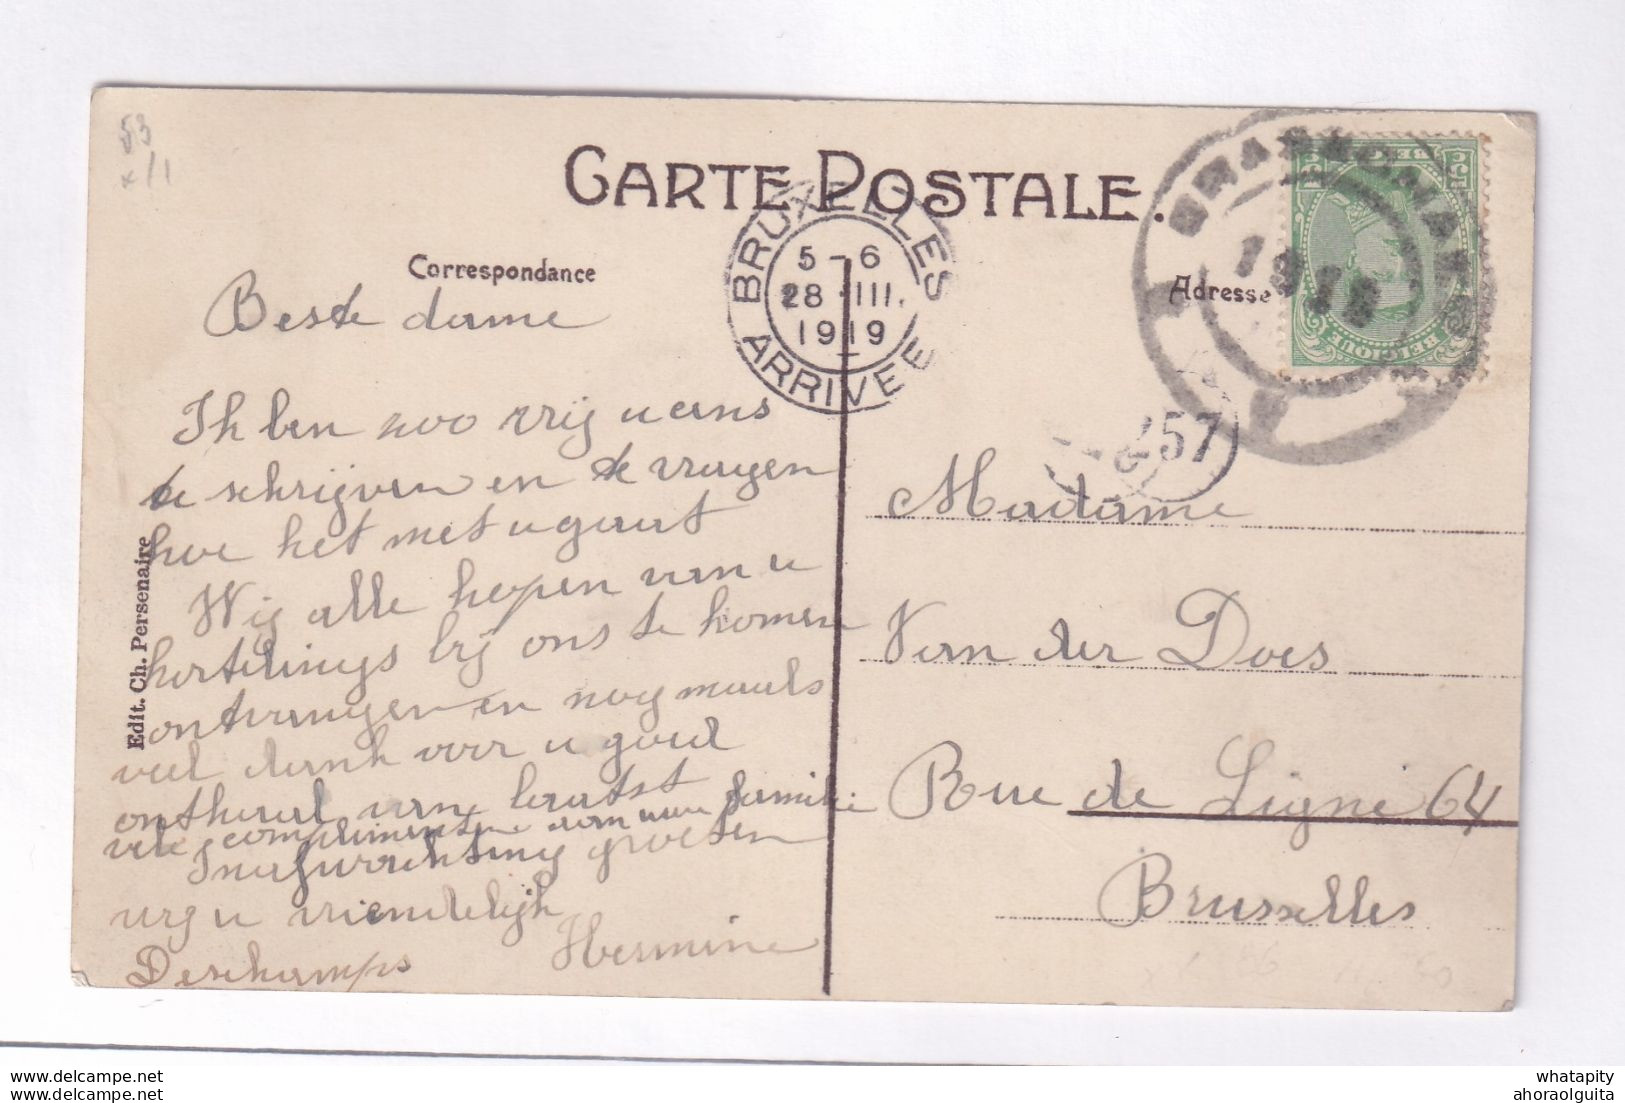 53
x/1
CARTE POSTALE.
Correspondance
Adresse
BRUXELLES
5-6
28 III.
1919
ARRIVEE
BELGIQUE
57
Edit. Ch. Persenaire
Beste dame
Ik ben zoo vrij u eens
te schrijven en te vragen
hoe het met u gaat
Wij alle hopen van u
kortelings bij ons te komen
ontvangen en nogmaals
veel dank voor u goed
onthaal van laatst
vele complimenten van mun familie
Inafwachting groeten
wij u vriendelijk
Deschamps Hermine
Madame
Van der Does
Rue de Ligne 64
Bruxelles
whatapity
ahoraolguita